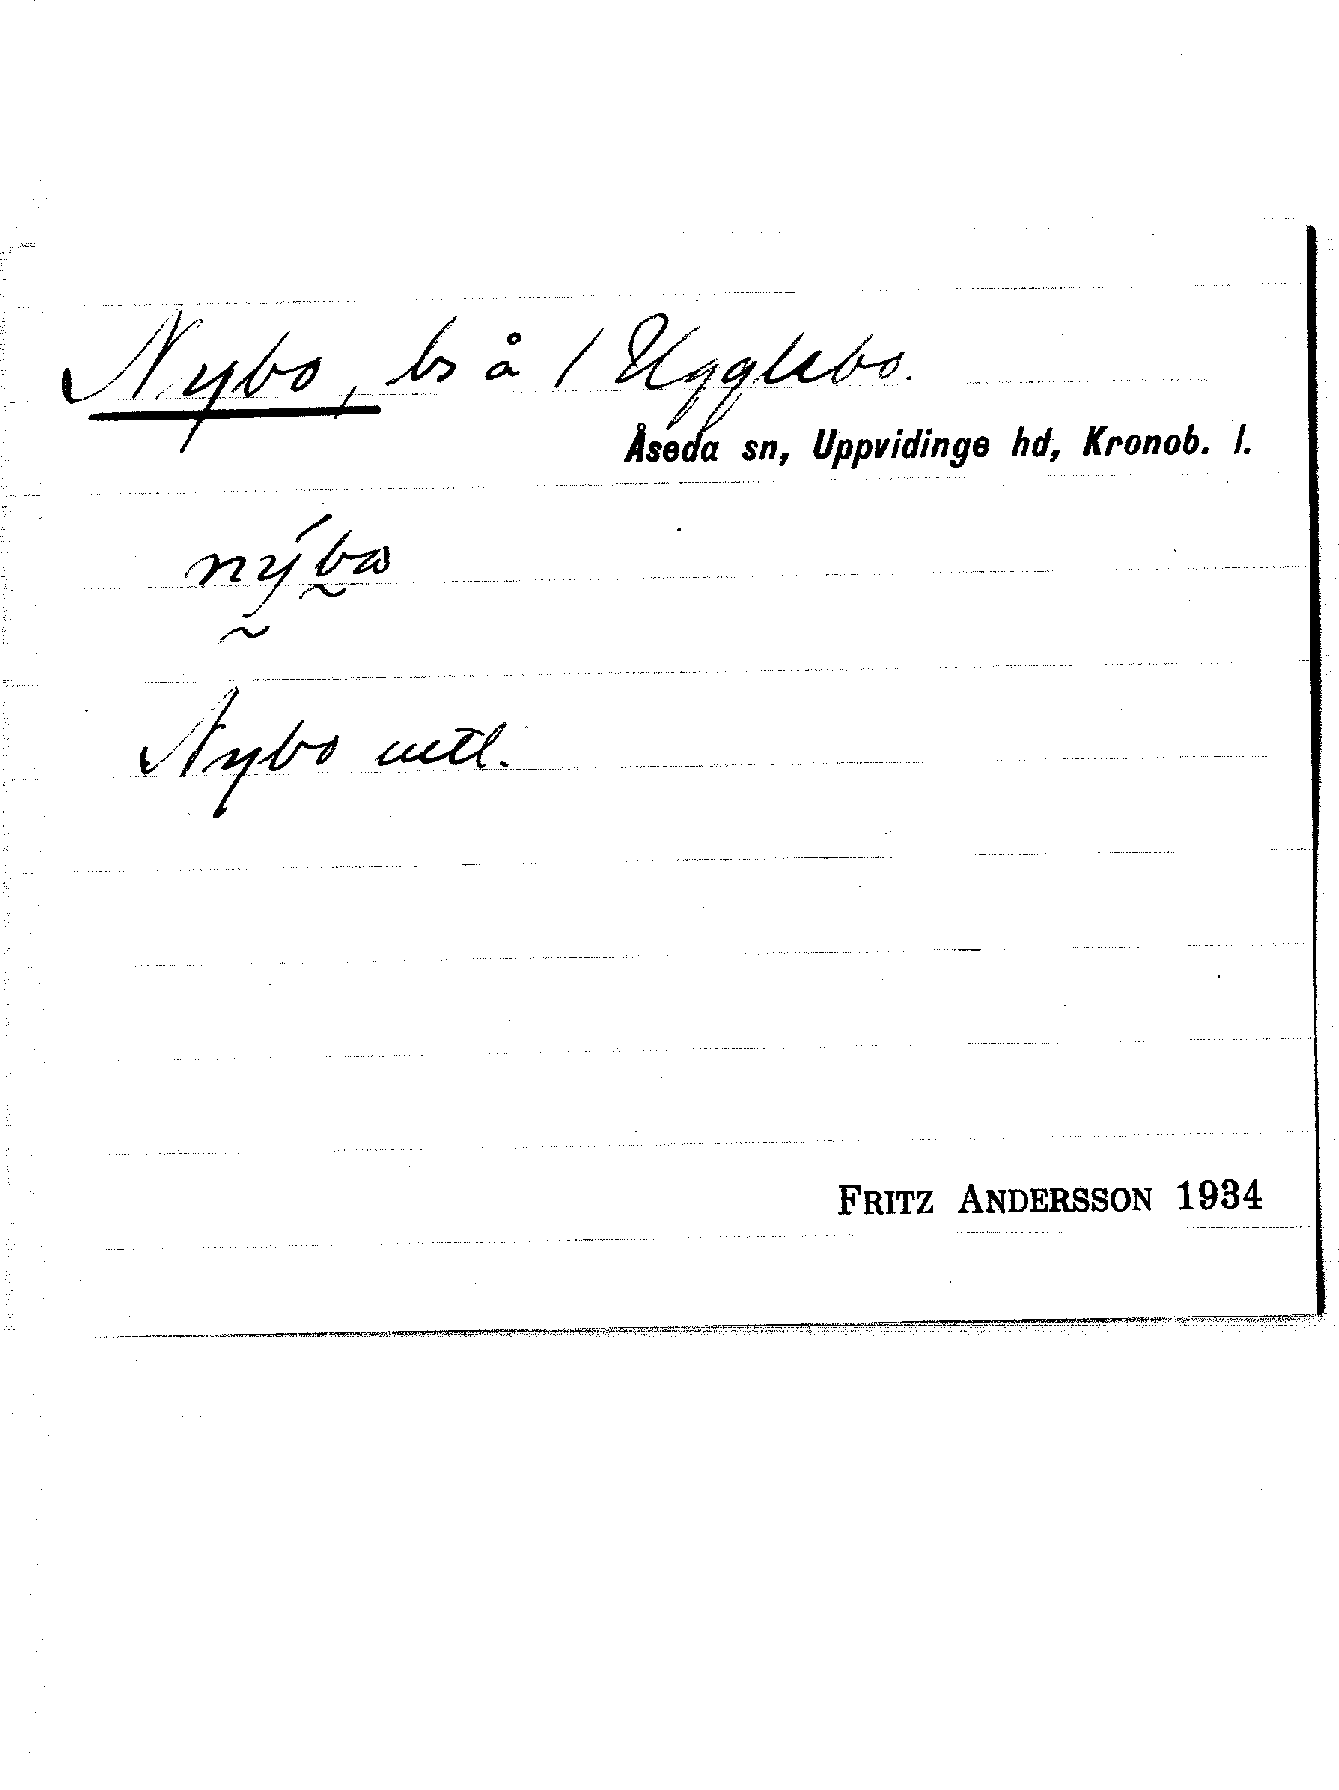 Nybo, bs å 1 Ugglebo.
Åseda sn, Uppvidinge hd, Kronob. l.
nýbo
Nybo uttl.
FRITZ ANDERSSON 1934